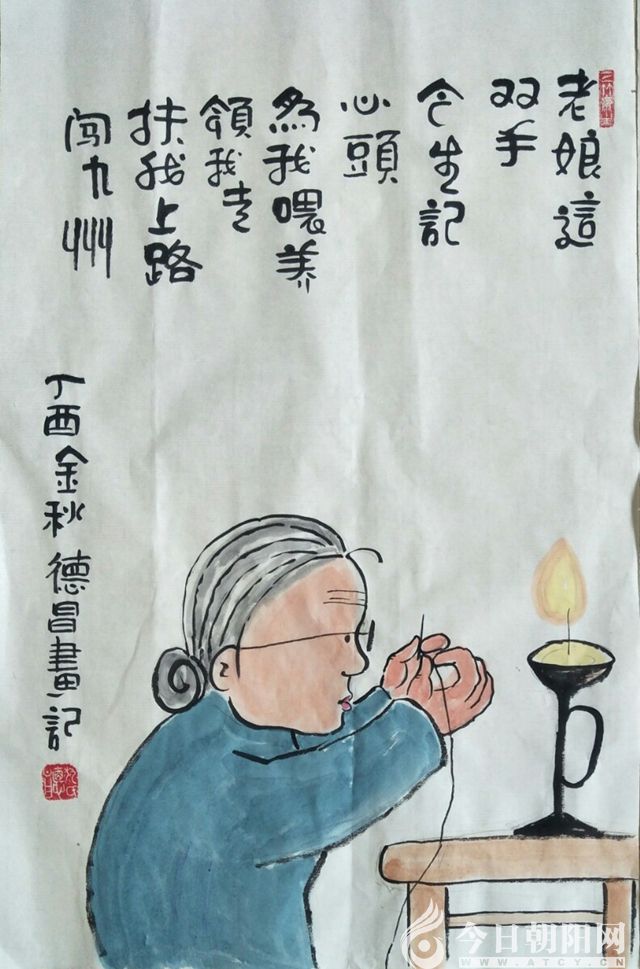 老娘這
双手
今生記
心頭
為我喂养
領我走
扶我上路
闯九州
丁酉金秋德昌畫記
今日朝阳网
WWW.ATCY.CN